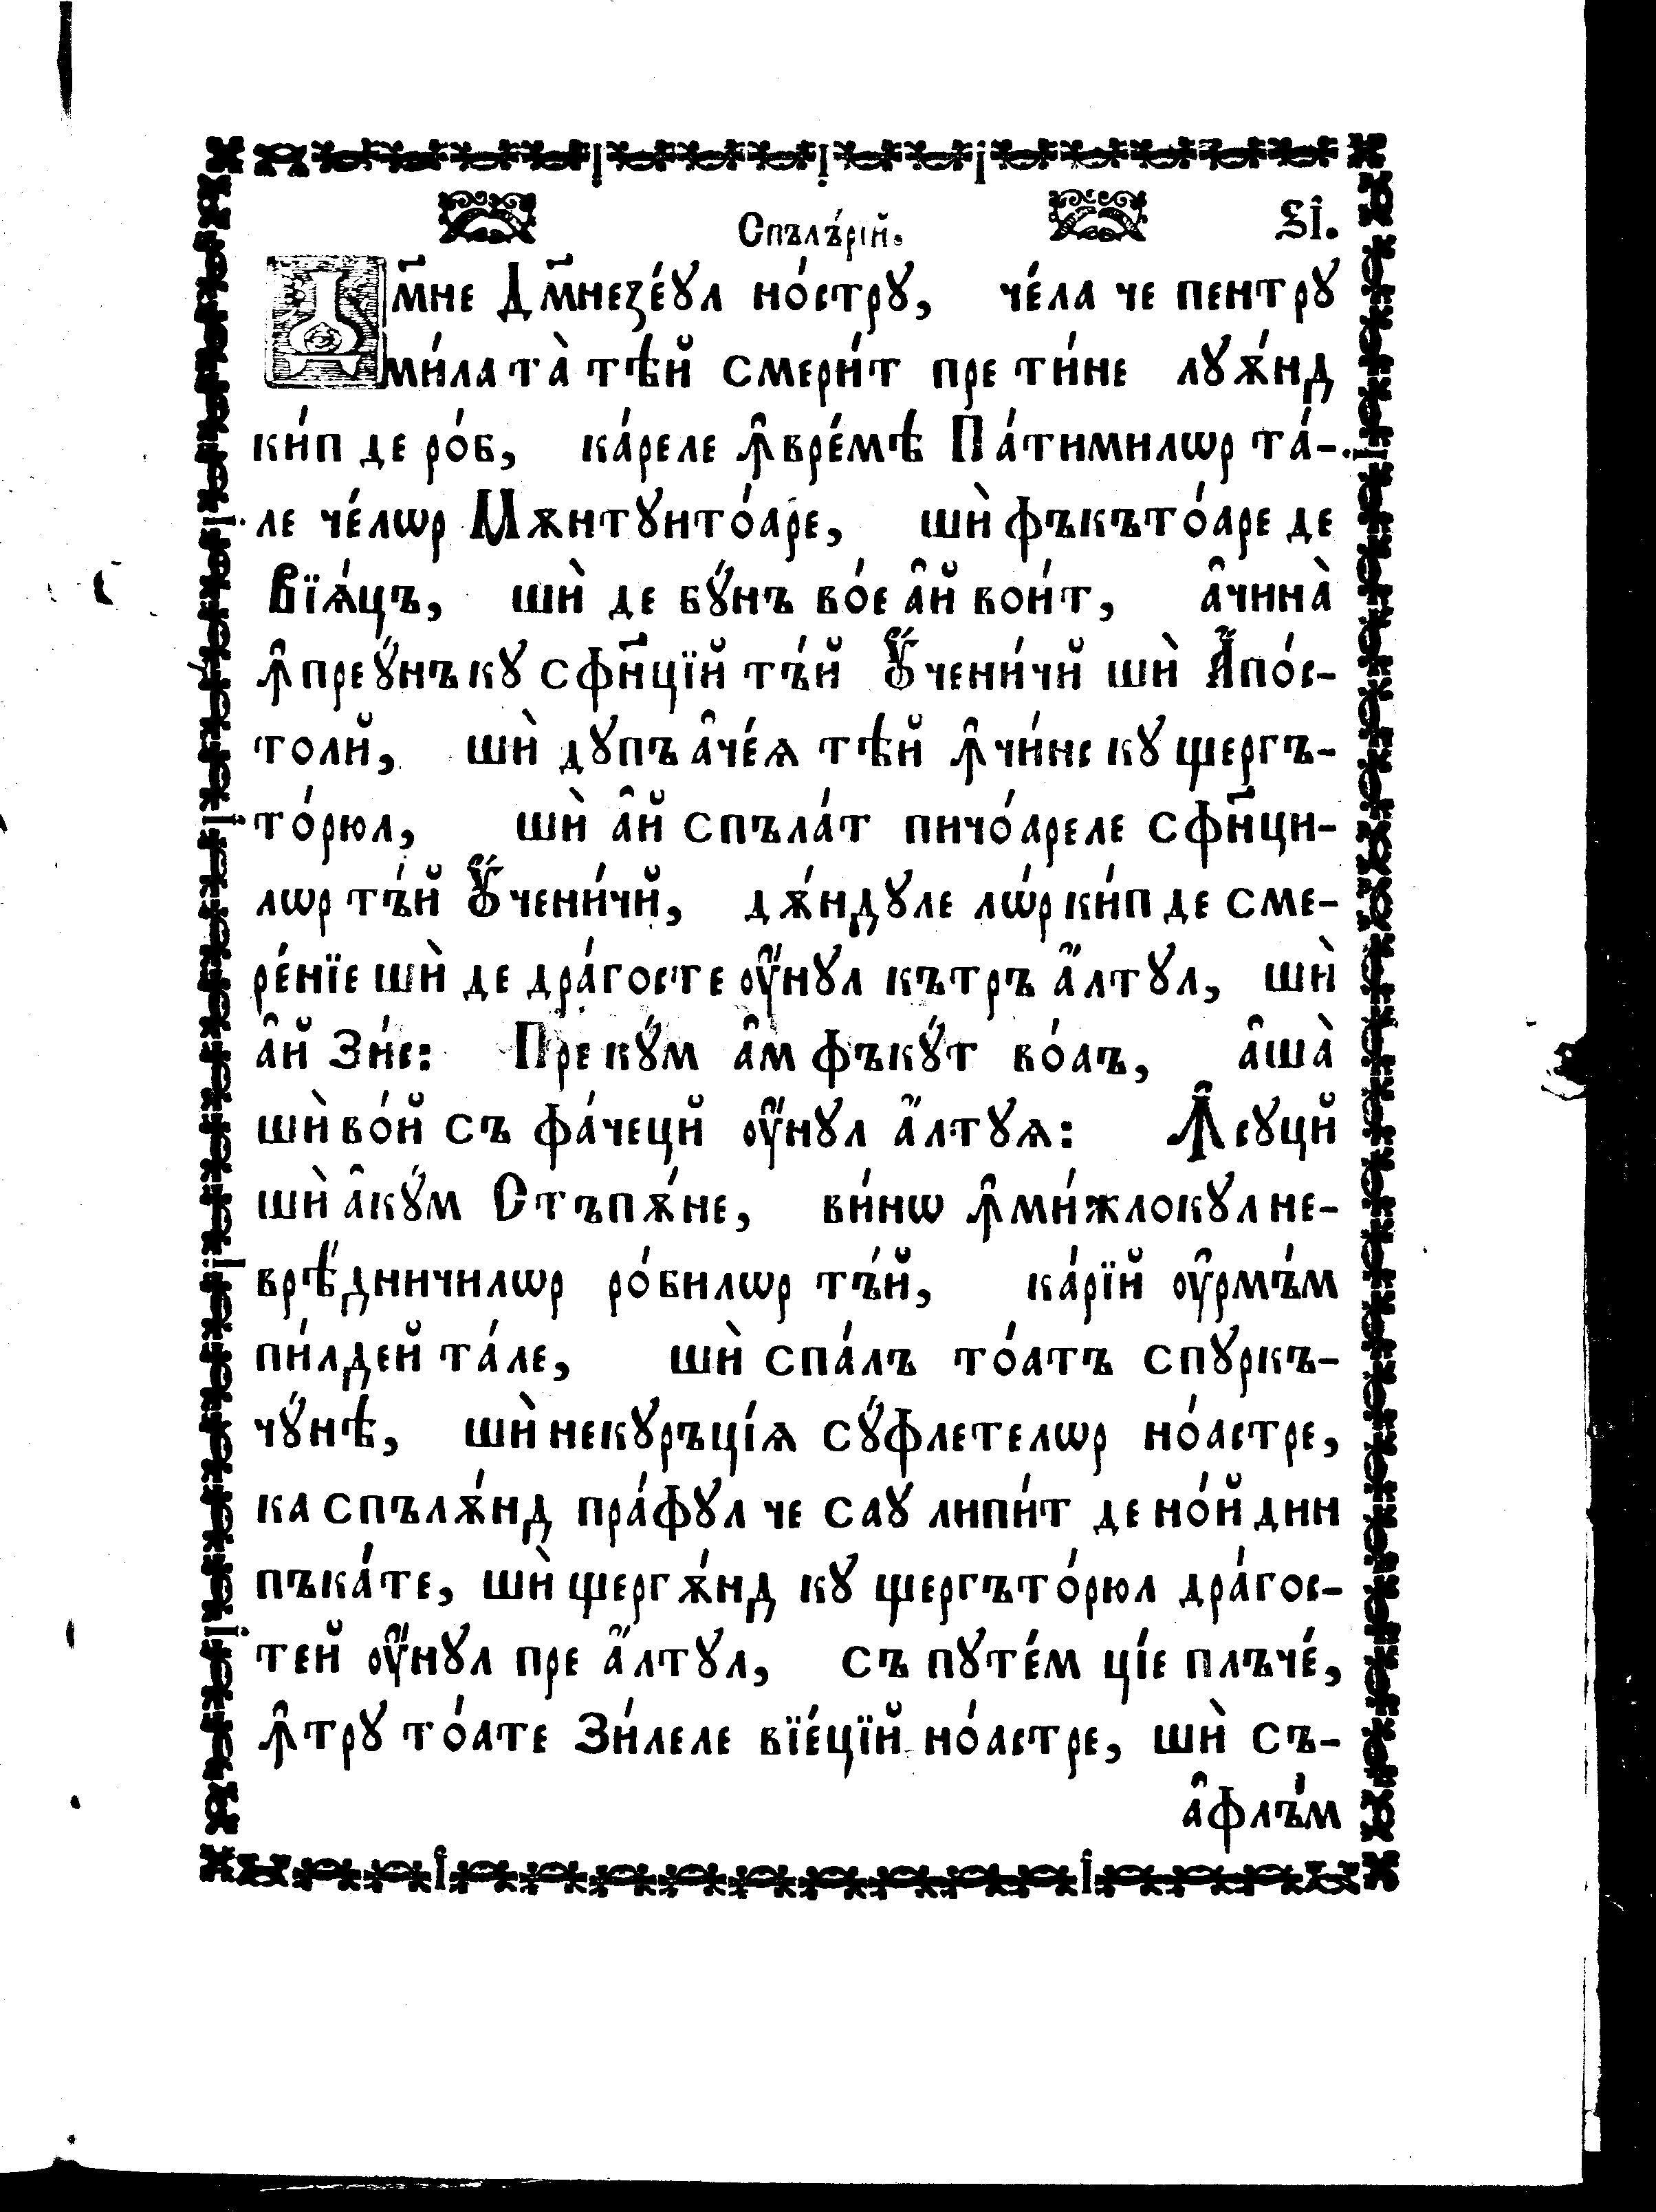 Спълъ́рїй. ЅІ҃.
Дм҃не Дм҃незе́ꙋл но́стрꙋ, че́ла че пентрꙋ
ми́ла та̀ тѣй смери́т пре ти́не лꙋѫ́нд
ки́п де ро́б, ка́реле ꙟ҆вре́мѣ Па́тимилѡр та́-
ле че́лѡр Мѫнтꙋито́аре, шѝ фъкъто́аре де
Вїѧ́цъ, шѝ де бꙋ́нъ во́е а҆й вои́т, а҆чина̀
ꙟ҆преꙋ́нъ кꙋ сфи҃нцїй тъ́й Ꙋ҆чени́чй шѝ А҆по́с-
толй, шѝ дꙋпъ а҆че́ѧ тѣй ꙟ҆чи́нс кꙋ щергъ-
то́рюл, шѝ а҆й спъла́т пичо́ареле сфи҃нци-
лѡр тъ́й Ꙋ҆чени́чй, дѫ́ндꙋле лѡ́р ки́п де сме-
ре́нїе шѝ де дра́госте ᲂу҆́нꙋл кътръ а҆́лтꙋл, шѝ
а҆й Зи́с: Прекꙋ́м а҆м фъкꙋ́т во́аъ, а҆ша̀
шѝ во́й съ фа́чецй ᲂу҆́нꙋл а҆́лтꙋѧ: Ꙟ҆сꙋцй
шѝ а҆кꙋ́м Стъпѫ́не, ви́нѡ ꙟ҆ми́жлокꙋл не-
врѣ́дничилѡр ро́билѡр тъ́й, ка́рїй ᲂу҆рмъ́м
пи́лдей та́ле, шѝ спа́лъ то́атъ спꙋркъ-
чꙋ́нѣ, шѝ некꙋръці́ѧ сꙋ́флетелѡр но́астре,
ка спълѫ́нд пра́фꙋл че саꙋ липи́т де но́й дин
пъка́те, шѝ щергѫ́нд кꙋ щергъто́рюл дра́гос-
тей ᲂу҆́нꙋл пре а҆́лтꙋл, съ пꙋте́м ці́е плъче́,
ꙟ҆трꙋ то́ате Зи́леле вїе́цїй но́астре, шѝ съ-
а҆флъ́м